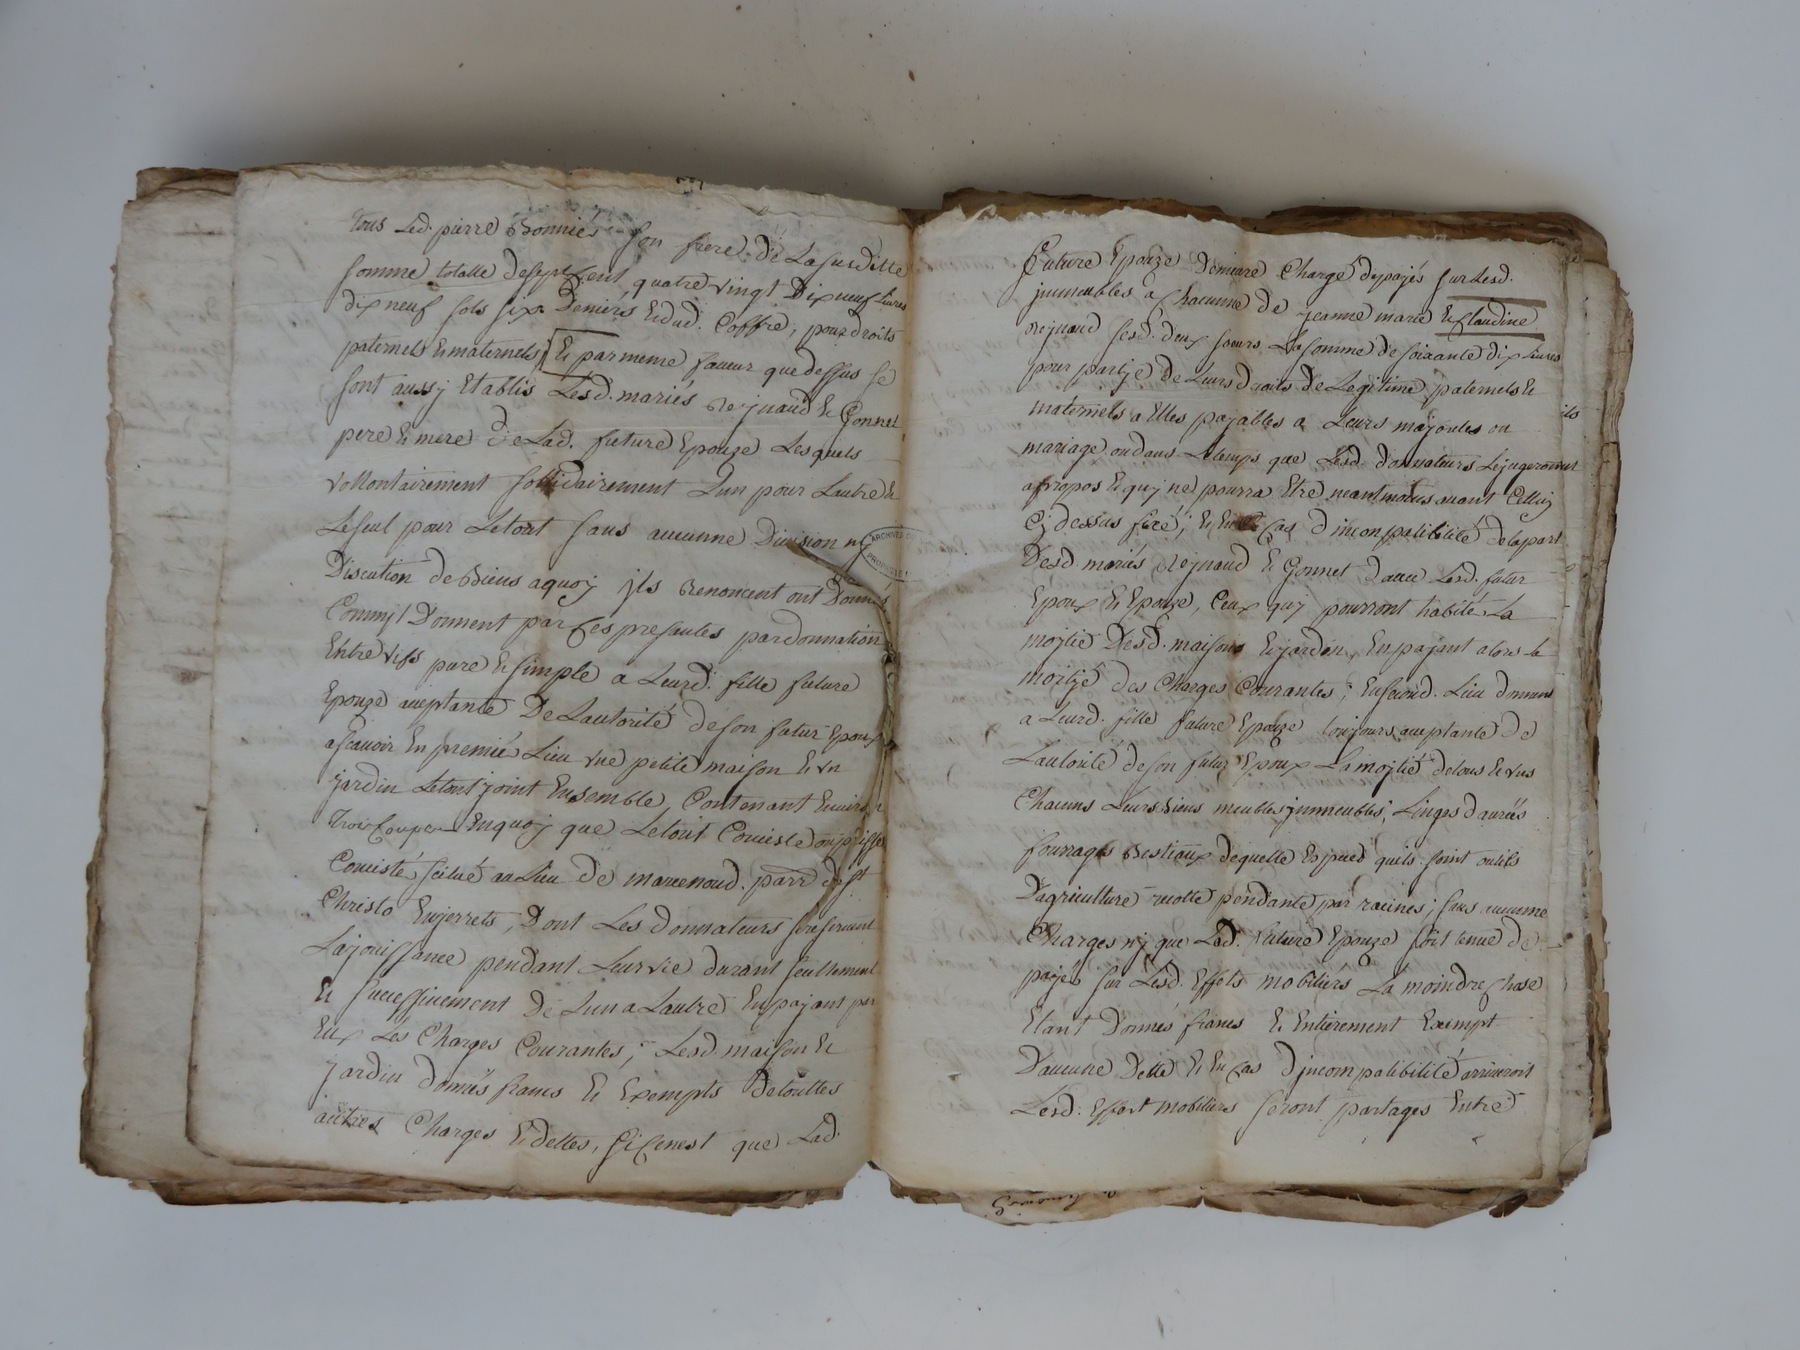 tous Led. pierre Bonniés son frere de La susditte
somme totalle de sept Cent quatre vingt Dix neuf Livres
dix neuf sols six Deniérs et dud. Coffre, pour droits
paternels & maternels, & par meme faveur que dessus se
sont aussy Etablis Lesd. mariés Rejnaud & Gonnet
pere & mere de Lad. future Epouze Lesquels
vollontairement sollidairement L'un pour Lautre &
Le seul pour Letout sans aucunne Division ny
Discution de Biens aquoy jls Renoncent ont Donnés
Comm'jl Donnent par Ces presantes par donnation
Entre vifs pure & simple a Leurd. fille future
Epouze aceptante De Lautorité de son futur Epoux
ascavoir En premié Lieu vne petite maison & vn
jardin Letout joint Ensemble, Contenant Environ
trois Coupes Enquoy que Letout Conciste ou puisse
Conciste scitué au Lieu de marcenoud. parr. de St
Christo Enjerrets, Dont Les donnateurs se reservent
La jouissance pendant Leur vie durant seullement
& successivement De Lun a Lautre En payant par
Eux Les Charges Courantes; Lesd. maison &
jardin donnés francs & Exempts De touttes
autres Charges & dettes, si Cenest que Lad.
future Epouze Demeure Chargé de payés sur Lesd.
jmmeubles a Chacunne de jeanne marie & Claudine
Rejnaud ses d. deux soeurs La somme de soixante dix Livres
pour partje de Leurs droits de Legitime paternels &
maternels a Elles payables a Leurs majorites ou
mariage ou dans Letemps que Lesd. donnateurs Lejugeronnt
apropos & quy ne pourra Etre neantmoins avant Celluy
Cy dessus fixé; & En Cas d'incompatibilité de la part
Desd. mariés Rejnaud & Gonnet d'avec Lesd. futur
Epoux & Epouze, Ceux quy pourront habité La
mojtié Desd. maison & jardin, En payant alors la
moitjé des Charges Courantes; En second. Lieu donnent
a Leurd. fille future Epouze toujours aceptante de
Lautorité de son futur Epoux La mojtié de tous & vns
Chacuns Leurs biens meubles jmmeubles, Linges d'aurées
fourrages Bestiaux dequelle Espeed quils soint outils
D'agriculture recolte pendante par racines; sans aucunne
Charges nj que Lad. future Epouze soit tenue de
payés sur Lesd. Effets mobiliérs La moindre Chose
Etant Donnés francs & Entiérement Exempt
D'aucune Dette & En Cas d'jncompatibilité arriveroit
Lesd. Effert mobiliers seront partages Entre
ARCHIVES